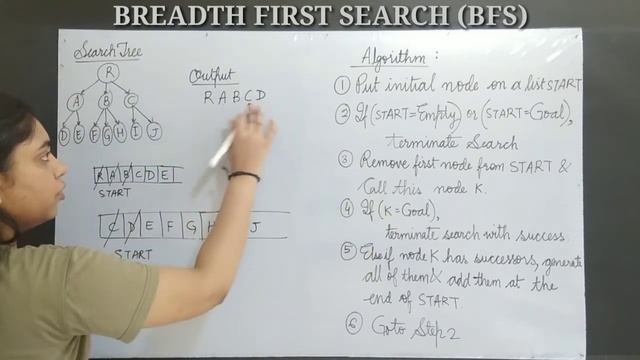 BREADTH FIRST SEARCH (BFS)
Search Tree
R
A B C
D E F G H I J
R A B C D E
START
C D E F G H J
START
Output
R A B C D
Algorithm :
① Put initial node on a list START
② If (START=Empty) or (START=Goal),
terminate Search
③ Remove first node from START &
Call this node K.
④ If (K=Goal),
terminate search with success.
⑤ Else if node K has successors, generate
all of them & add them at the
end of START.
⑥ Goto Step 2